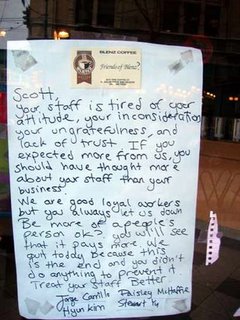 BLENZ COFFEE
Friends of Blenz
Scott,
Your staff is tired of your
attitude, your inconsideration,
your ungratefulness, and
lack of trust. If you
expected more from us, you
should have thought more
about your staff than your
business.
We are good loyal workers
but you always let us down
Be more of a people's
person ok? you will see
that it pays more. We
quit today because this
is the end and you didn't
do anything to prevent it
Treat your staff Better
Jorge Carrillo Paisley McHaffie
Hyun Kim Stewart